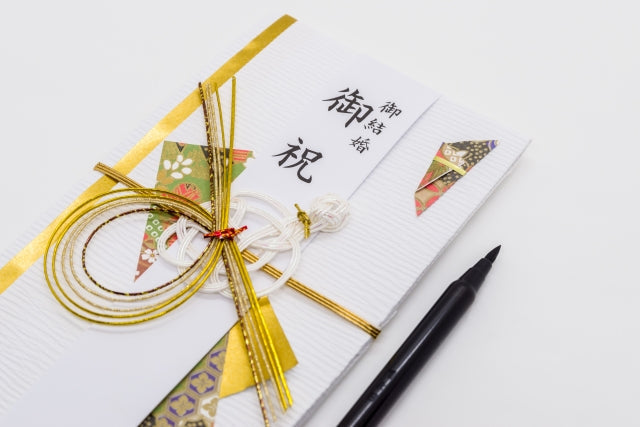 御結婚
御祝